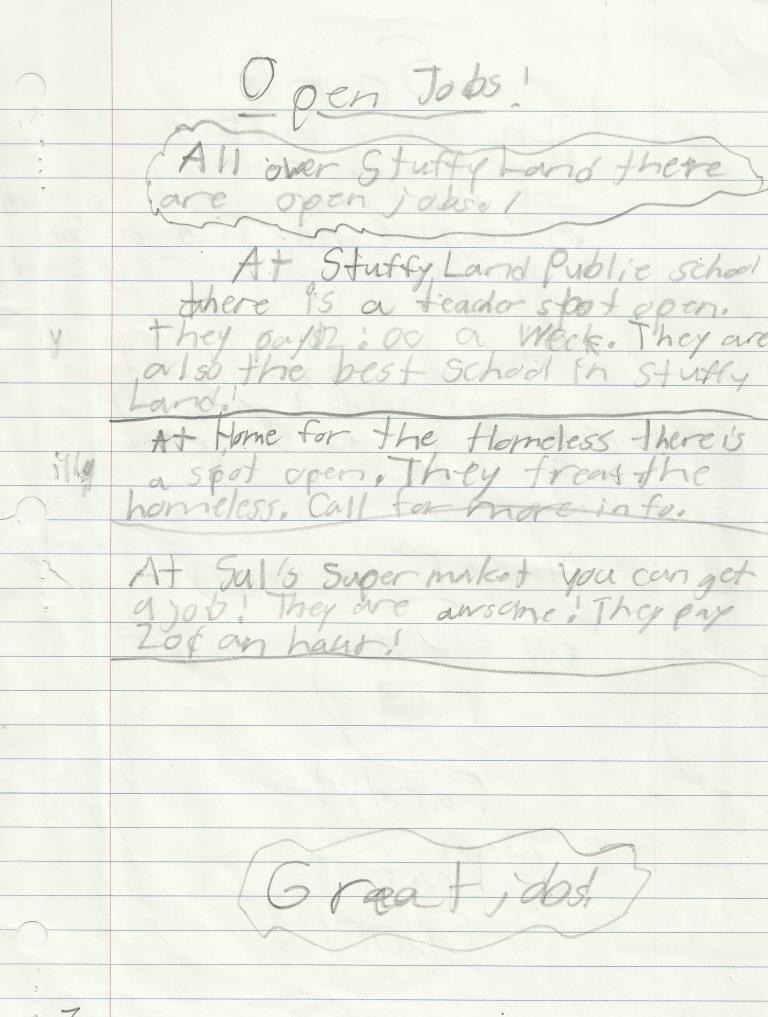 Open Jobs!
All over Stuffy Land there
are open jobs!
At Stuffy Land Public school
there is a teacher spot open.
They pay $2:00 a week. They are
also the best school in Stuffy
Land!
At Home for the Homeless there is
a spot open. They treat the
homeless. Call for more info.
At Sal's Super maket you can get
a job! They are awsome! They pay
20¢ an haur!
Great jobs!